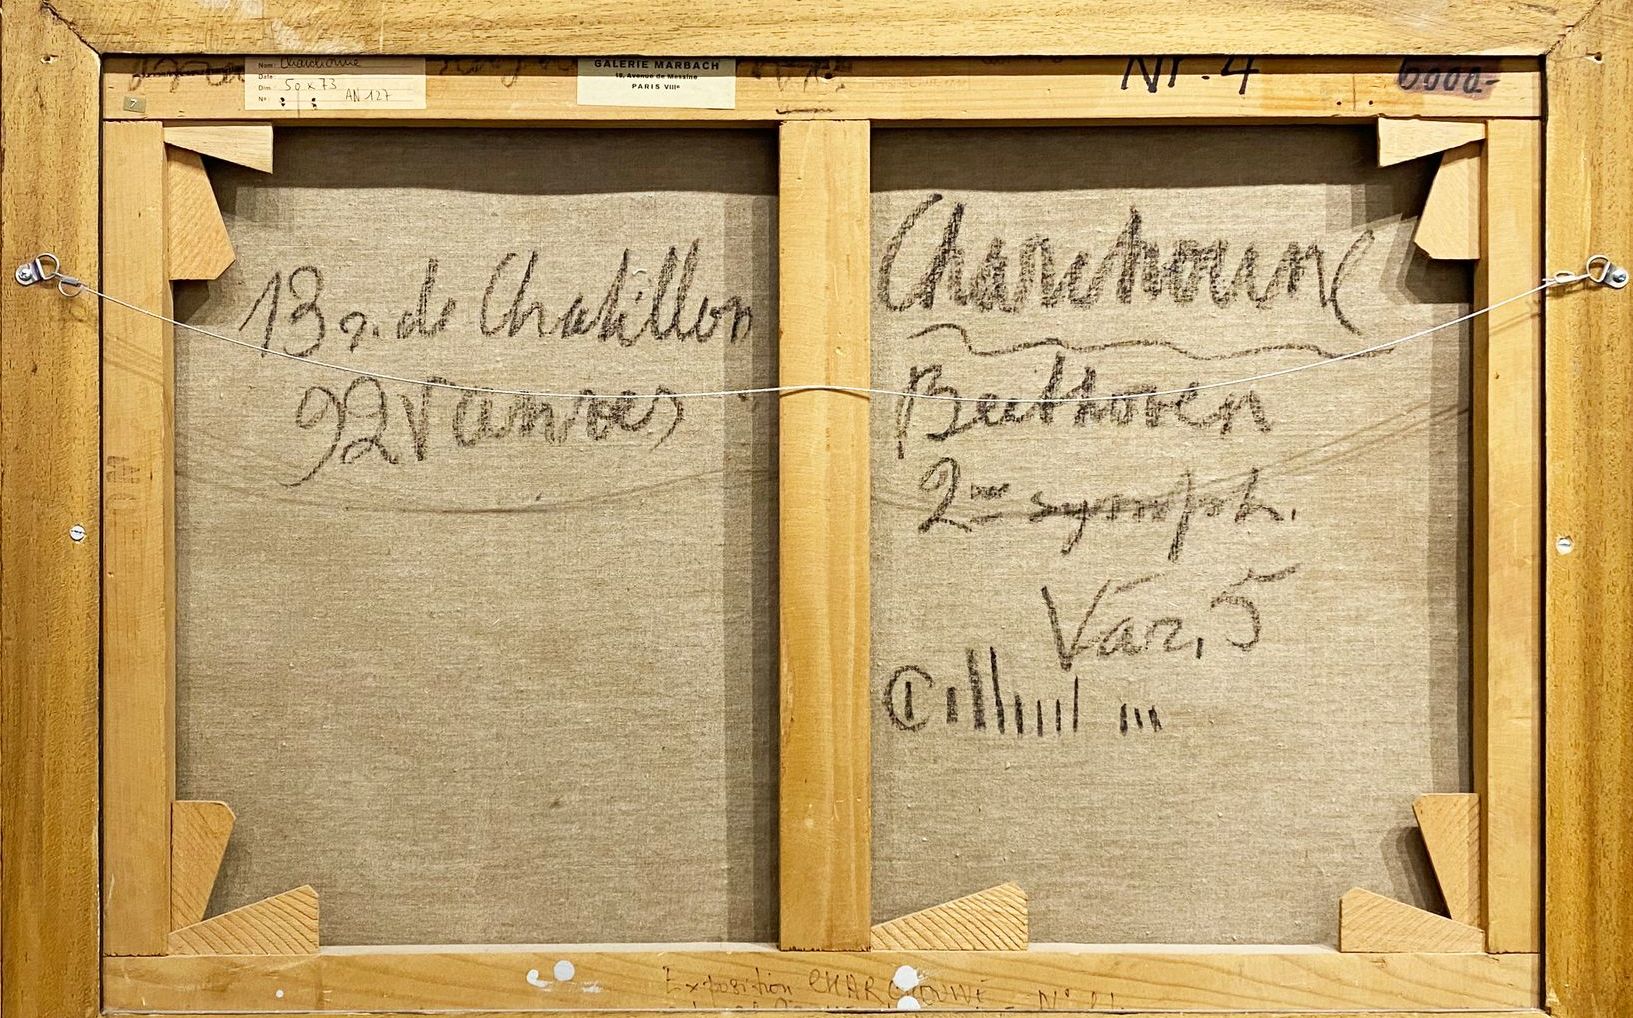 Nom: Charchoune
Date:
Dim. 50 x 73
N° AN 127
7
GALERIE MARBACH
18, Avenue de Messine
PARIS VIIIe
Nr. 4
6000-
13 r. de Chatillon
92 Vanves
Charchoune
Beethoven
2= symph.
Var, 5
Exposition CHARCHOUNE - N°